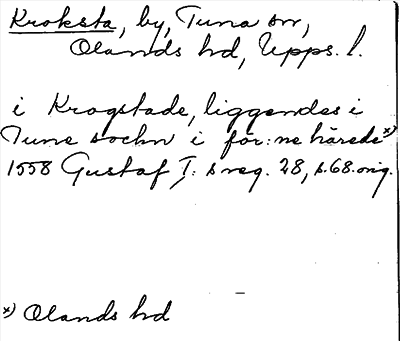 Kroksta, by, Tuna sn,
Olands hd, Upps. l.
i Krogstade, liggendes i
Tune sochn i för:ne härede x)
1558 Gustaf I:s reg. 28, s. 68. orig.
x) Olands hd